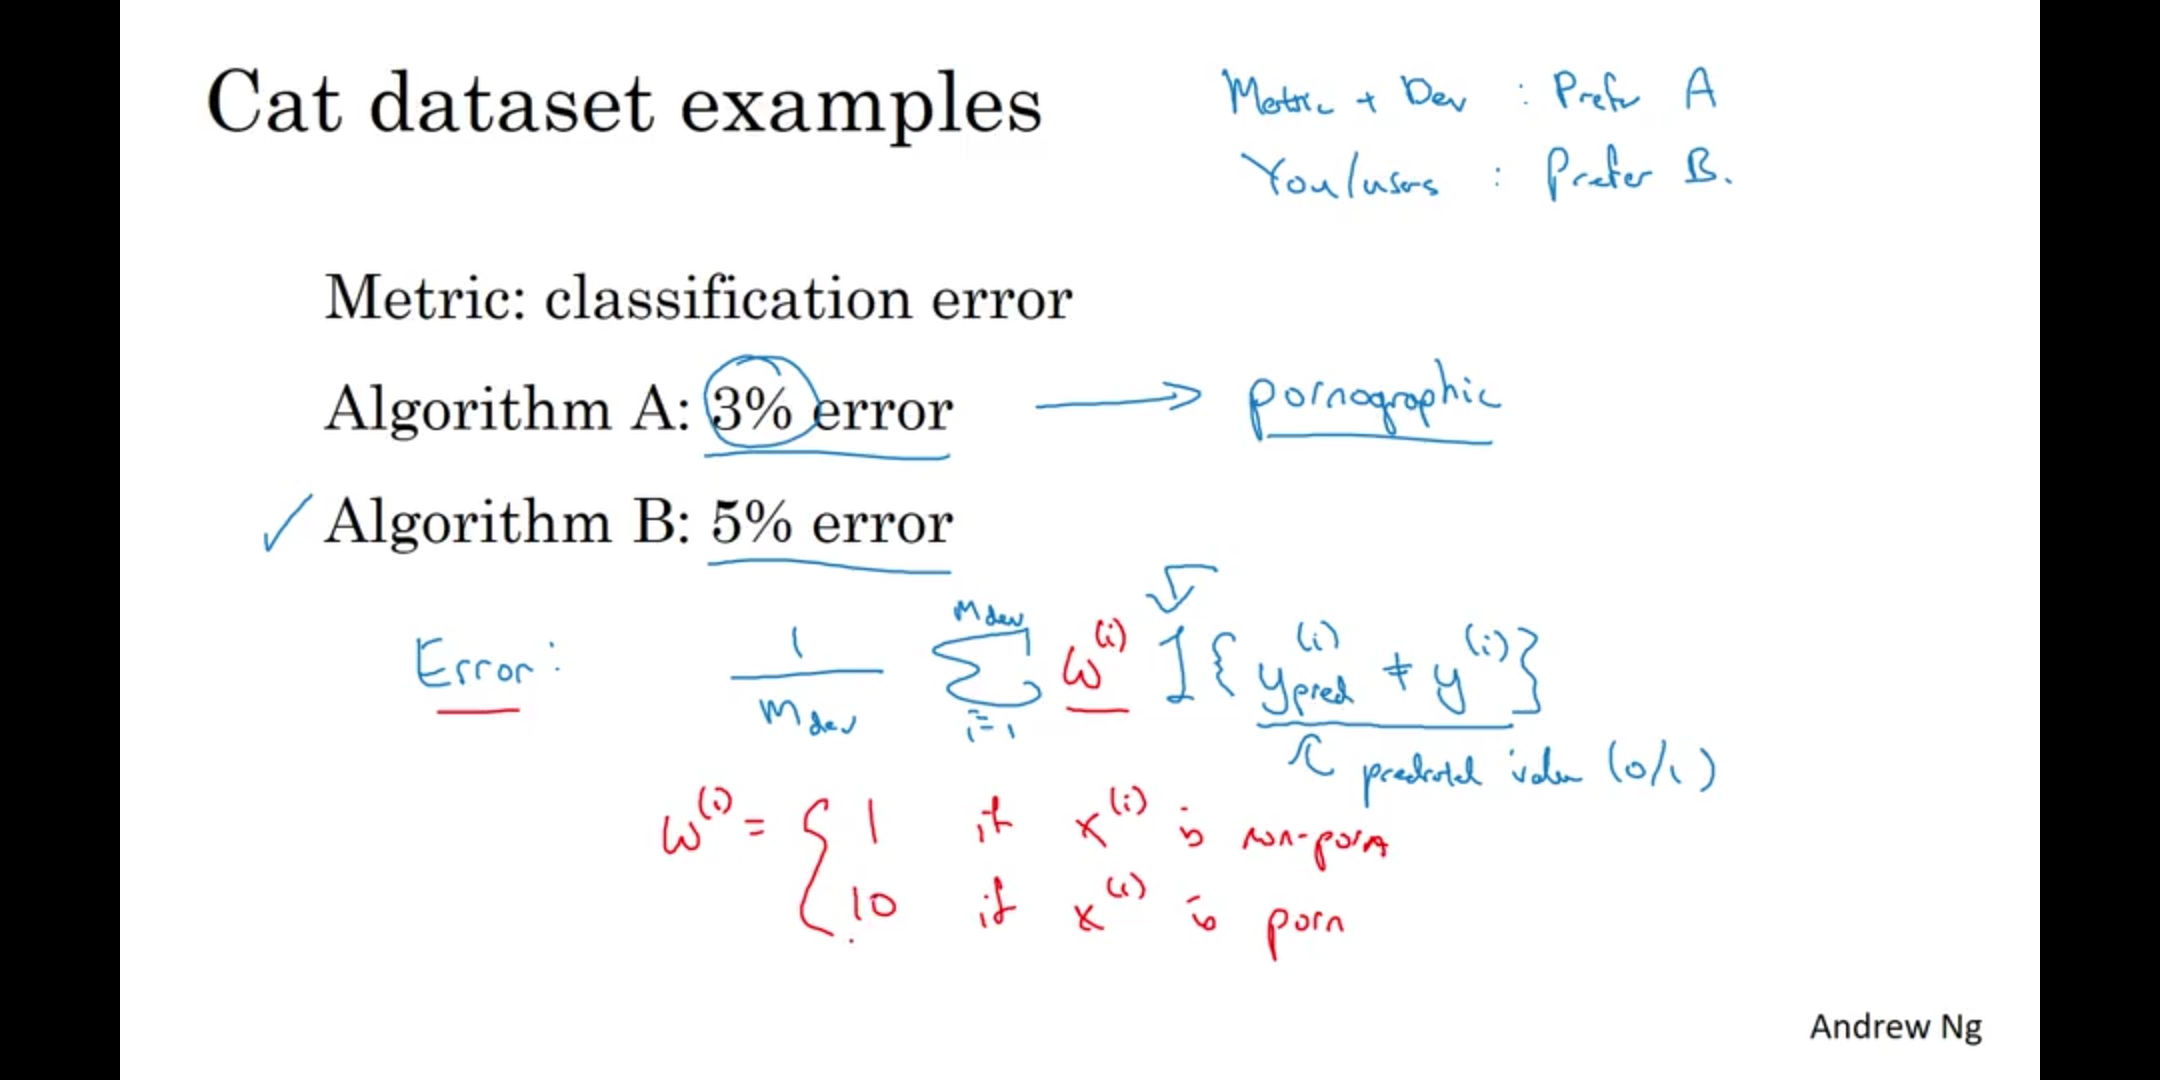 Cat dataset examples
Metric + Dev : Prefer A
You/users : Prefer B.
Metric: classification error
Algorithm A: 3% error → pornographic
✓ Algorithm B: 5% error
Error: 1/m_dev Σ_{i=1}^{m_dev} w^(i) 1{y_pred^(i) ≠ y^(i)}
predicted value (0/1)
w^(i) = { 1 if x^(i) is non-porn
10 if x^(i) is porn
Andrew Ng